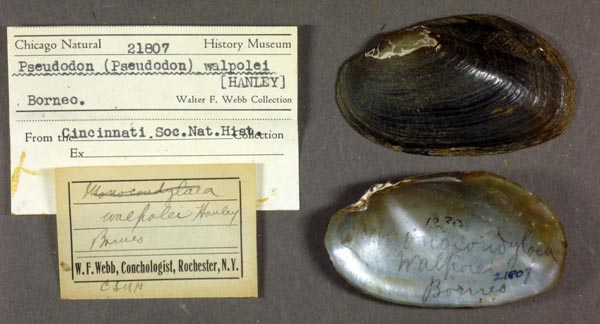 Chicago Natural 21807 History Museum
Pseudodon (Pseudodon) walpolei
[HANLEY]
Borneo. Walter F. Webb Collection
From the Cincinnati Soc.Nat.Hist. Collection
Ex
Monocondylaea
walpolei Hanley
Borneo
W. F. Webb, Conchologist, Rochester, N.Y.
CSNH
Monocondylaea
Walpolei
21807
Borneo